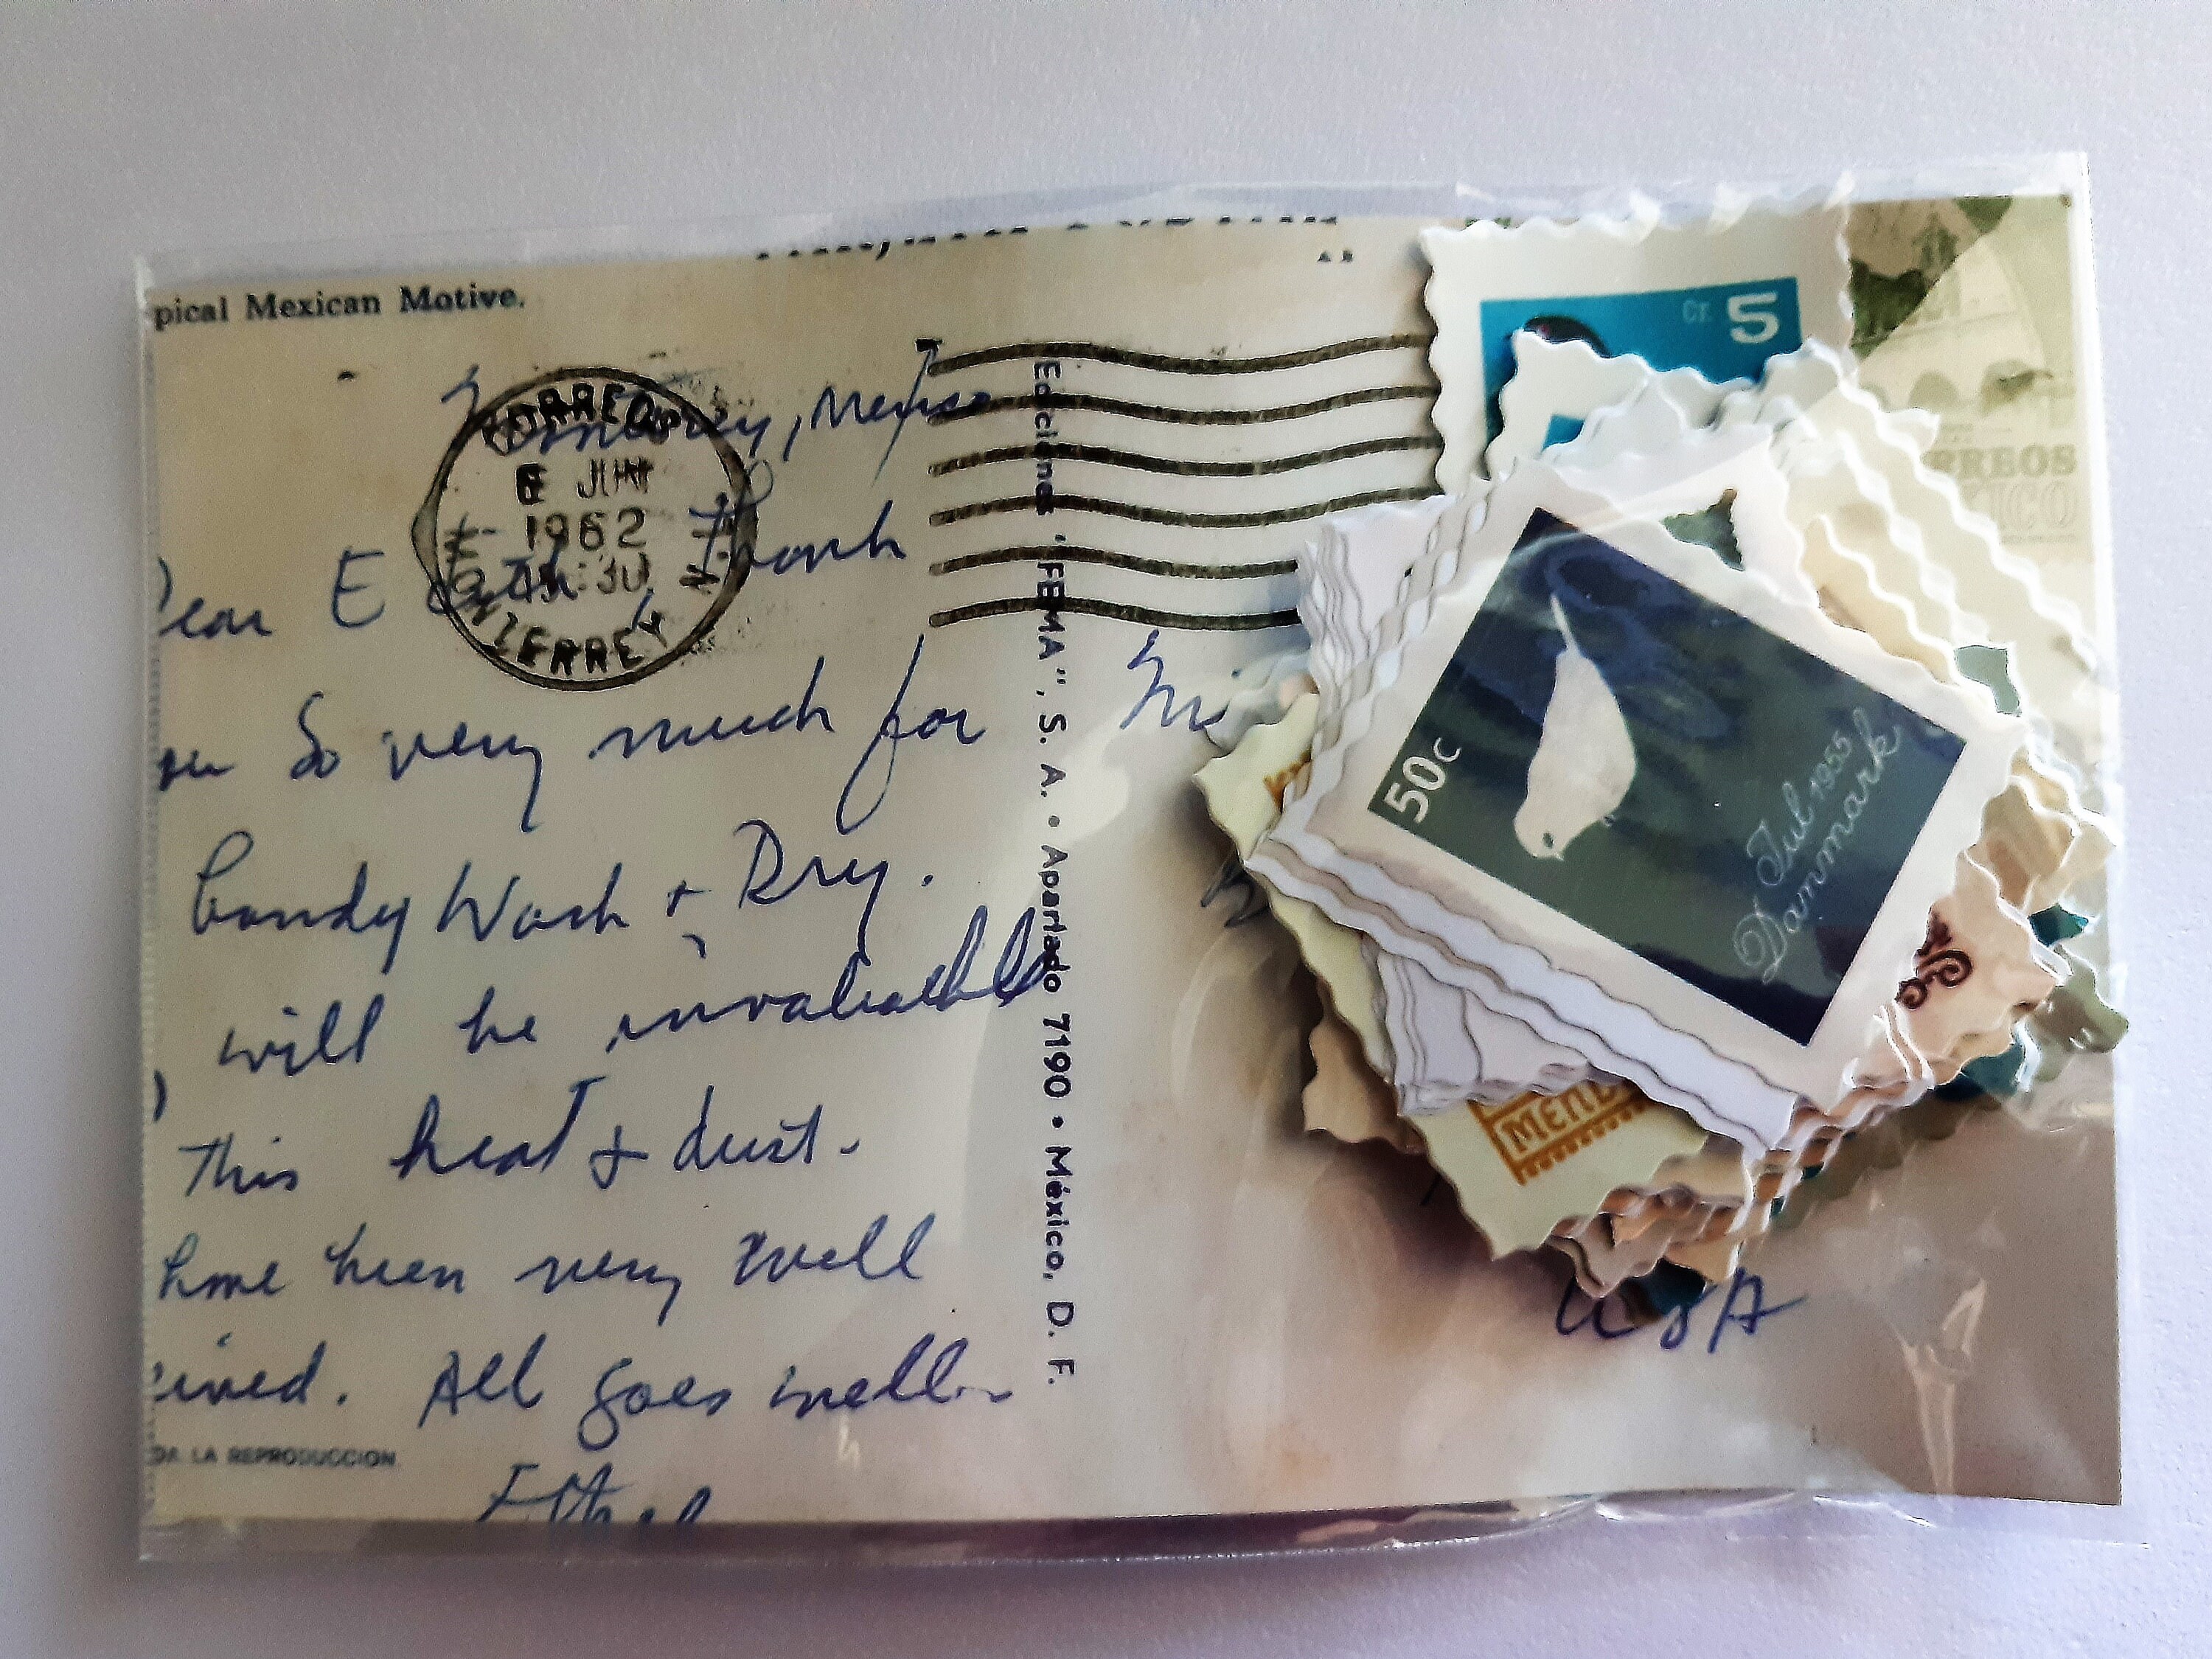 pical Mexican Motive.
CORREOS
6 JUN
1962
MONTERREY
Monterrey, Mexico
Dear Edith, Thank
you So very much for
Candy Wash + Dry.
will be invaluable
This heat + dust.
have been very well
eived. All goes well
DA LA REPRODUCCION
Ethel
Ediciones "FEMA", S. A. • Apartado 7190 • México, D. F.
USA
CT. 5
RREOS
XICO
50c
Jul 1955
Danmark
MEND